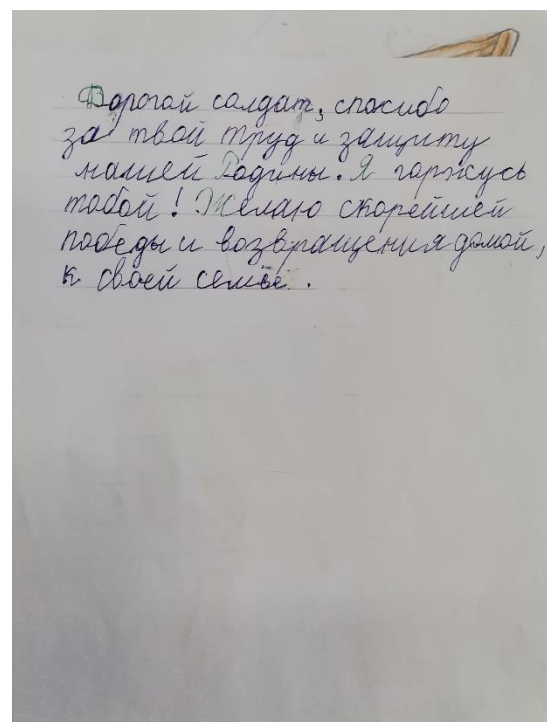 Дорогой солдат, спасибо
за твой труд и защиту
нашей Родины. Я горжусь
тобой! Желаю скорейшей
победы и возвращения домой,
к своей семье.